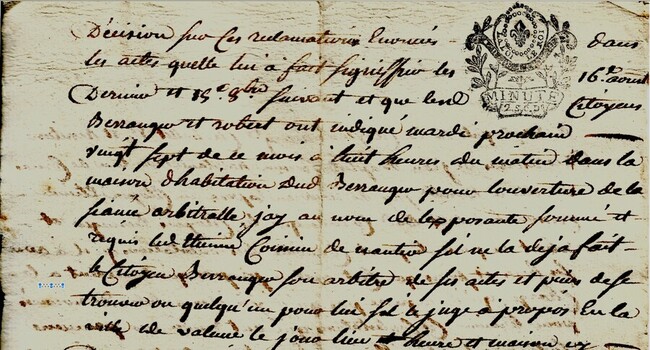 Décision sur Ces reclamations Enoncés dans
les actes quelle lui a fait signiffier les 16e aoust
LA LOI LE ROI
MINUTE
2. S. 6. D
Dernier et 15e 8bre suivant et que lesd Citoyens
Berranger et robert ont indiqué mardi prochain
vingt sept de ce mois a huit heures du matin dans la
maison dhabitation dud Berranger pour louverture de la
séance arbitralle jay au nom de lexposante sommé et
requis led de nantir sil ne la deja fait
le Citoyen Berranger son arbitre de ses actes et pieces de se
trouver ou quelqu'un pour lui sil le juge a propos En la
ville de valence le jour lieu heure et maison cy